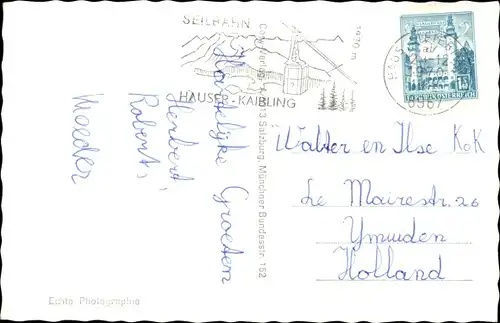 SEILBAHN
1970 m
HAUSER-KAIBLING
HAUS
8967
ÖSTERREICH
Hartelijke Groeten
Herbert,
Robert,
Moeder
Salzburg, Münchner Bundesstr. 152
Walter en Ilse KoK
Le Mairestr. 26
Ymuiden
Holland
Echte Photographie